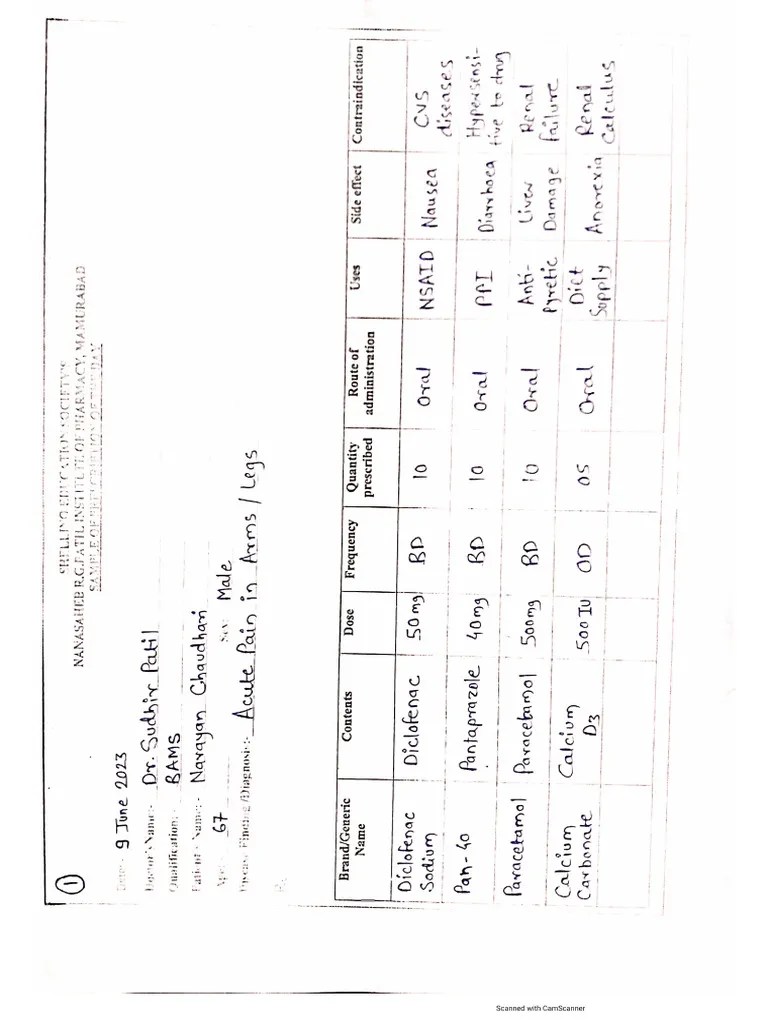 1
SHELLINO EDUCATION SOCIETY'S
NANASAHEB R.G.PATIL INSTITUTE OF PHARMACY, MAMURABAD
SAMPLE OF PRESCRIPTION OF THE DAY
Date:- 9 June 2023
Doctor's Name:- Dr. Sudhir Patil
Qualification:- BAMS
Patient's Name:- Narayan Chaudhari
Age:- 67 Sex:- Male
Disease Finding /Diagnosis:- Acute Pain in Arms / Legs
Rx
Brand/Generic Name Contents Dose Frequency Quantity prescribed Route of administration Uses Side effect Contraindication
Diclofenac Sodium Diclofenac 50 mg BD 10 Oral NSAID Nausea CVS diseases
Pan-40 Pantaprazole 40mg BD 10 Oral PPI Diarrhoea Hypersensi-tive to drug
Paracetamol Paracetamol 500mg BD 10 Oral Anti-Pyretic Liver Damage Renal failure
Calcium Carbonate Calcium D3 500 IU OD 05 Oral Diet Supply Anorexia Renal Calculus
Scanned with CamScanner